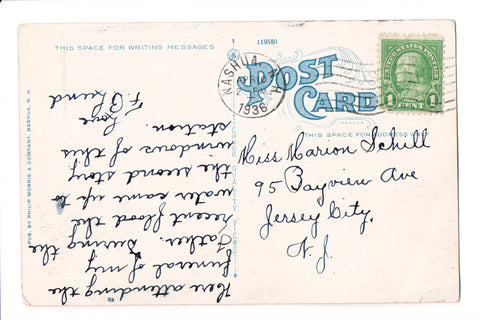 THIS SPACE FOR WRITING MESSAGES
119580
POST
CARD
THIS SPACE FOR ADDRESS ONLY
NASHUA, N.H.
1936
UNITED STATES POSTAGE
1 CENT 1
Miss Marion Schill
95 Bayview Ave
Jersey City,
N. J.
Here attending the
funeral of my
Father. During the
recent flood the
water came up to
the second story
windows of this
station.
Love
PUB. BY PHILIP MORRIS & COMPANY, NASHUA, N. H.